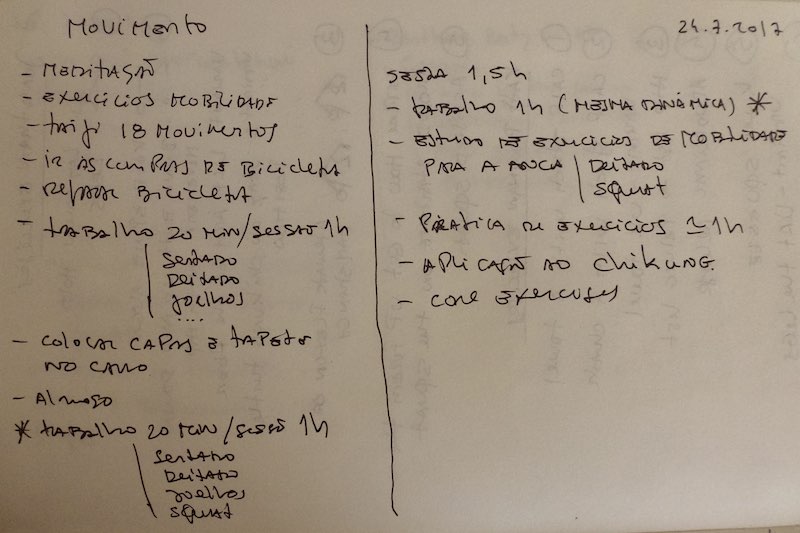 Movimento
24.7.2017
- Meditação
- exercícios mobilidade
- taiji 18 movimentos
- ir às compras de bicicleta
- reparar bicicleta
- trabalho 20 min/sessão 1h
sentado
deitado
joelhos
....
- colocar capas e tapete
no carro
- Almoço
* trabalho 20 min/sessão 1h
sentado
deitado
joelhos
squat
sesta 1,5h
- trabalho 1h (mesma dinâmica) *
- estudo de exercícios de mobilidade
para a anca
deitado
squat
- Prática de exercícios ≃ 1h
- aplicação ao chikung
- core exercises